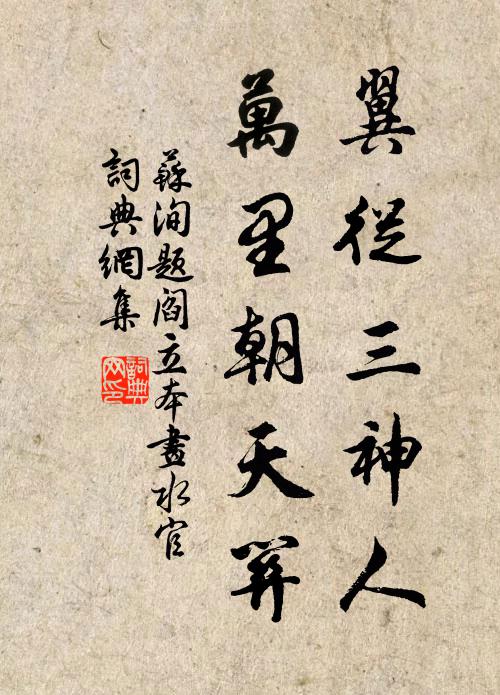 翼從三神人
萬里朝天關
蘇洵题閻立本畫水官
詞典網集
詞典
网印